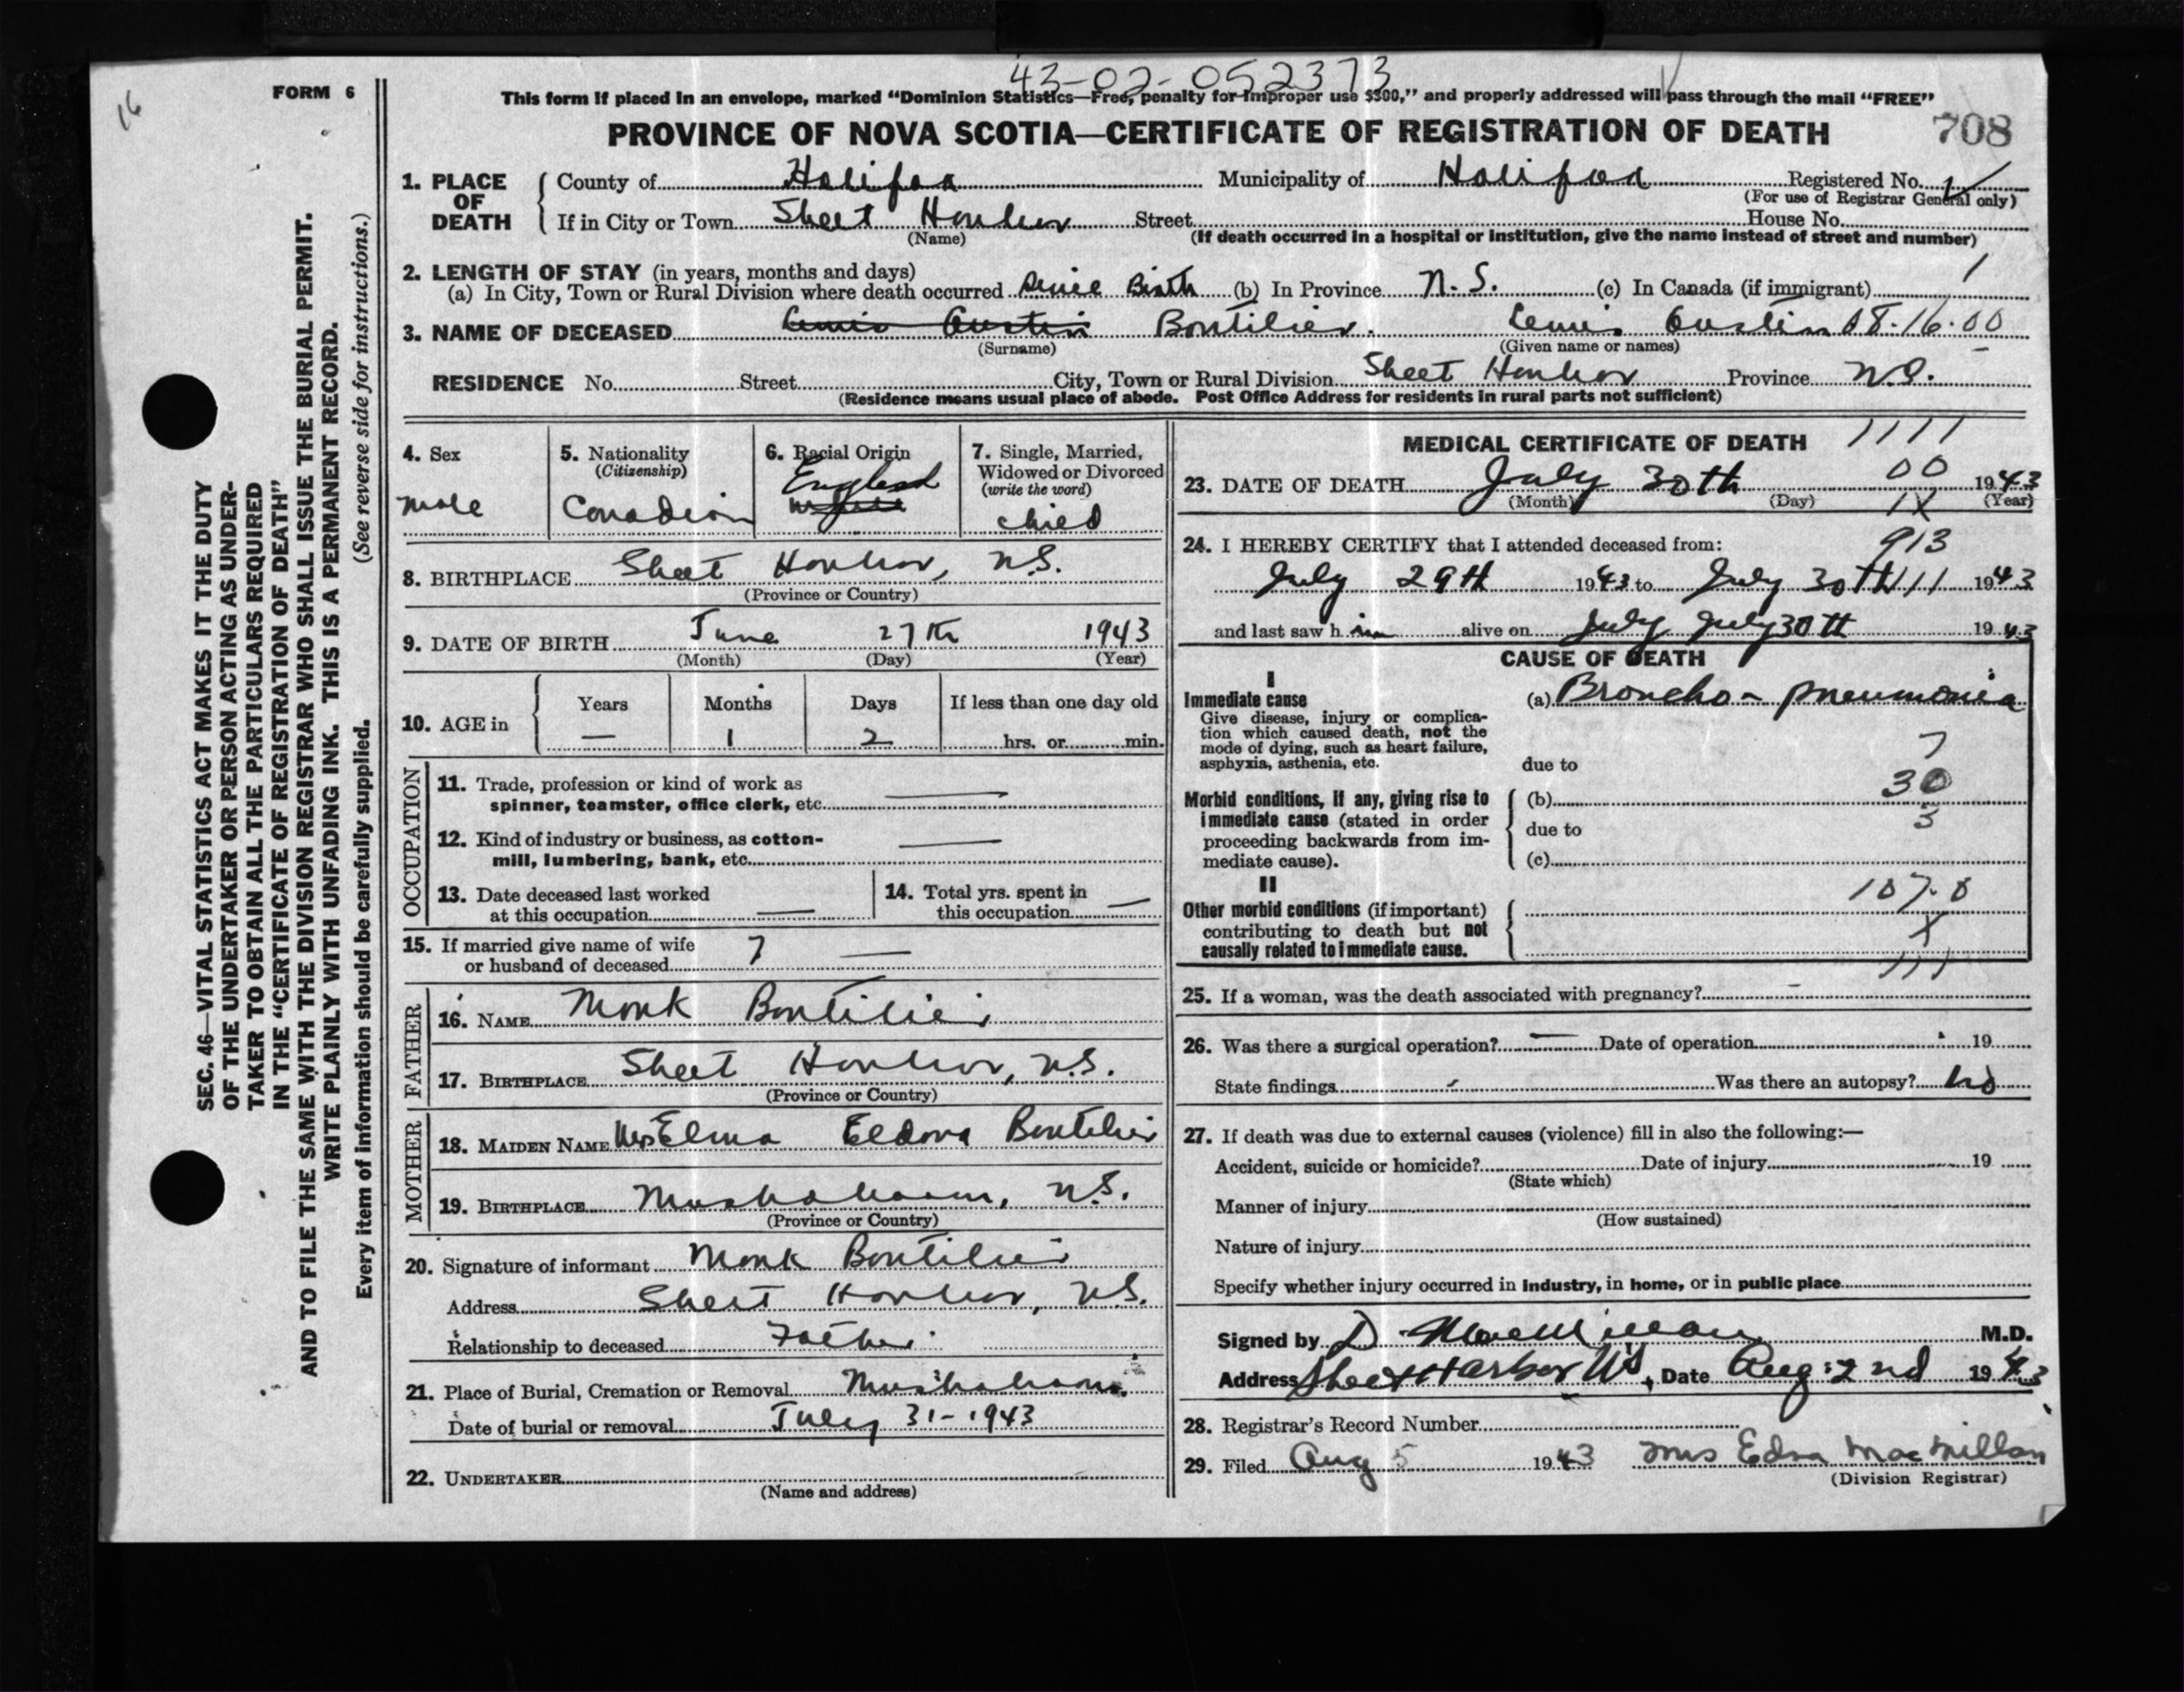 43-02-052373
16
FORM 6
This form if placed in an envelope, marked “Dominion Statistics—Free, penalty for improper use $300,” and properly addressed will pass through the mail “FREE”
PROVINCE OF NOVA SCOTIA—CERTIFICATE OF REGISTRATION OF DEATH
708
SEC. 46—VITAL STATISTICS ACT MAKES IT THE DUTY
OF THE UNDERTAKER OR PERSON ACTING AS UNDER-
TAKER TO OBTAIN ALL THE PARTICULARS REQUIRED
IN THE “CERTIFICATE OF REGISTRATION OF DEATH”
AND TO FILE THE SAME WITH THE DIVISION REGISTRAR WHO SHALL ISSUE THE BURIAL PERMIT.
WRITE PLAINLY WITH UNFADING INK. THIS IS A PERMANENT RECORD.
Every item of information should be carefully supplied. (See reverse side for instructions.)
1. PLACE OF DEATH
County of Halifax Municipality of Halifax Registered No.
(For use of Registrar General only)
If in City or Town Sheet Harbor Street House No.
(Name) (If death occurred in a hospital or institution, give the name instead of street and number)
2. LENGTH OF STAY (in years, months and days)
(a) In City, Town or Rural Division where death occurred Since Birth (b) In Province N.S. (c) In Canada (if immigrant) 1
3. NAME OF DECEASED Lewis Austin Boutilier. Lewis Austin 08.16.00
(Surname) (Given name or names)
RESIDENCE No. Street City, Town or Rural Division Sheet Harbor Province N.S.
(Residence means usual place of abode. Post Office Address for residents in rural parts not sufficient)
4. Sex
male
5. Nationality
(Citizenship)
Canadian
6. Racial Origin
English
7. Single, Married,
Widowed or Divorced
(write the word)
child
8. BIRTHPLACE Sheet Harbor, N.S.
(Province or Country)
9. DATE OF BIRTH June 27th 1943
(Month) (Day) (Year)
10. AGE in
Years Months Days If less than one day old
— 1 2 hrs. or min.
OCCUPATION
11. Trade, profession or kind of work as
spinner, teamster, office clerk, etc. —
12. Kind of industry or business, as cotton-
mill, lumbering, bank, etc. —
13. Date deceased last worked
at this occupation —
14. Total yrs. spent in
this occupation —
15. If married give name of wife
or husband of deceased 7 —
FATHER
16. NAME Monk Boutilier
17. BIRTHPLACE Sheet Harbor, N.S.
(Province or Country)
MOTHER
18. MAIDEN NAME Mrs Elma Eldora Boutilier
19. BIRTHPLACE Mushaboom, N.S.
(Province or Country)
20. Signature of informant Monk Boutilier
Address Sheet Harbor, N.S.
Relationship to deceased Father
21. Place of Burial, Cremation or Removal Mushaboom.
Date of burial or removal July 31-1943
22. UNDERTAKER
(Name and address)
MEDICAL CERTIFICATE OF DEATH 1111
00
23. DATE OF DEATH July 30th 1943
(Month) (Day) (Year)
1X
24. I HEREBY CERTIFY that I attended deceased from: 913
July 29th 1943 to July 30th 111 1943
and last saw him alive on July July 30th 1943
CAUSE OF DEATH
I
Immediate cause
Give disease, injury or complica-
tion which caused death, not the
mode of dying, such as heart failure,
asphyxia, asthenia, etc.
(a) Broncho-pneumonia
7
due to
30
Morbid conditions, if any, giving rise to
immediate cause (stated in order
proceeding backwards from im-
mediate cause).
(b)
3
due to
(c)
II
107.0
Other morbid conditions (if important)
contributing to death but not
causally related to immediate cause.
X
111
25. If a woman, was the death associated with pregnancy? –
26. Was there a surgical operation? — Date of operation 19
State findings Was there an autopsy? No
27. If death was due to external causes (violence) fill in also the following:—
Accident, suicide or homicide? Date of injury 19
(State which)
Manner of injury
(How sustained)
Nature of injury
Specify whether injury occurred in Industry, in home, or in public place
Signed by D. MacMillan M.D.
Address Sheet Harbor N.S, Date Aug. 2nd 1943
28. Registrar’s Record Number
29. Filed Aug 5 1943 Mrs Edna MacMillan
(Division Registrar)